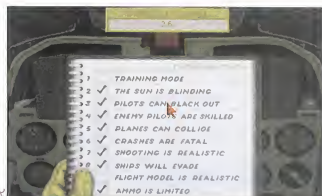 1 TRAINING MODE
2 ✓ THE SUN IS BLINDING
3 ✓ PILOTS CAN BLACK OUT
4 ✓ ENEMY PILOTS ARE SKILLED
5 ✓ PLANES CAN COLLIDE
6 ✓ CRASHES ARE FATAL
✓ SHOOTING IS REALISTIC
✓ SHIPS WILL EVADE
FLIGHT MODEL IS REALISTIC
✓ AMMO IS LIMITED